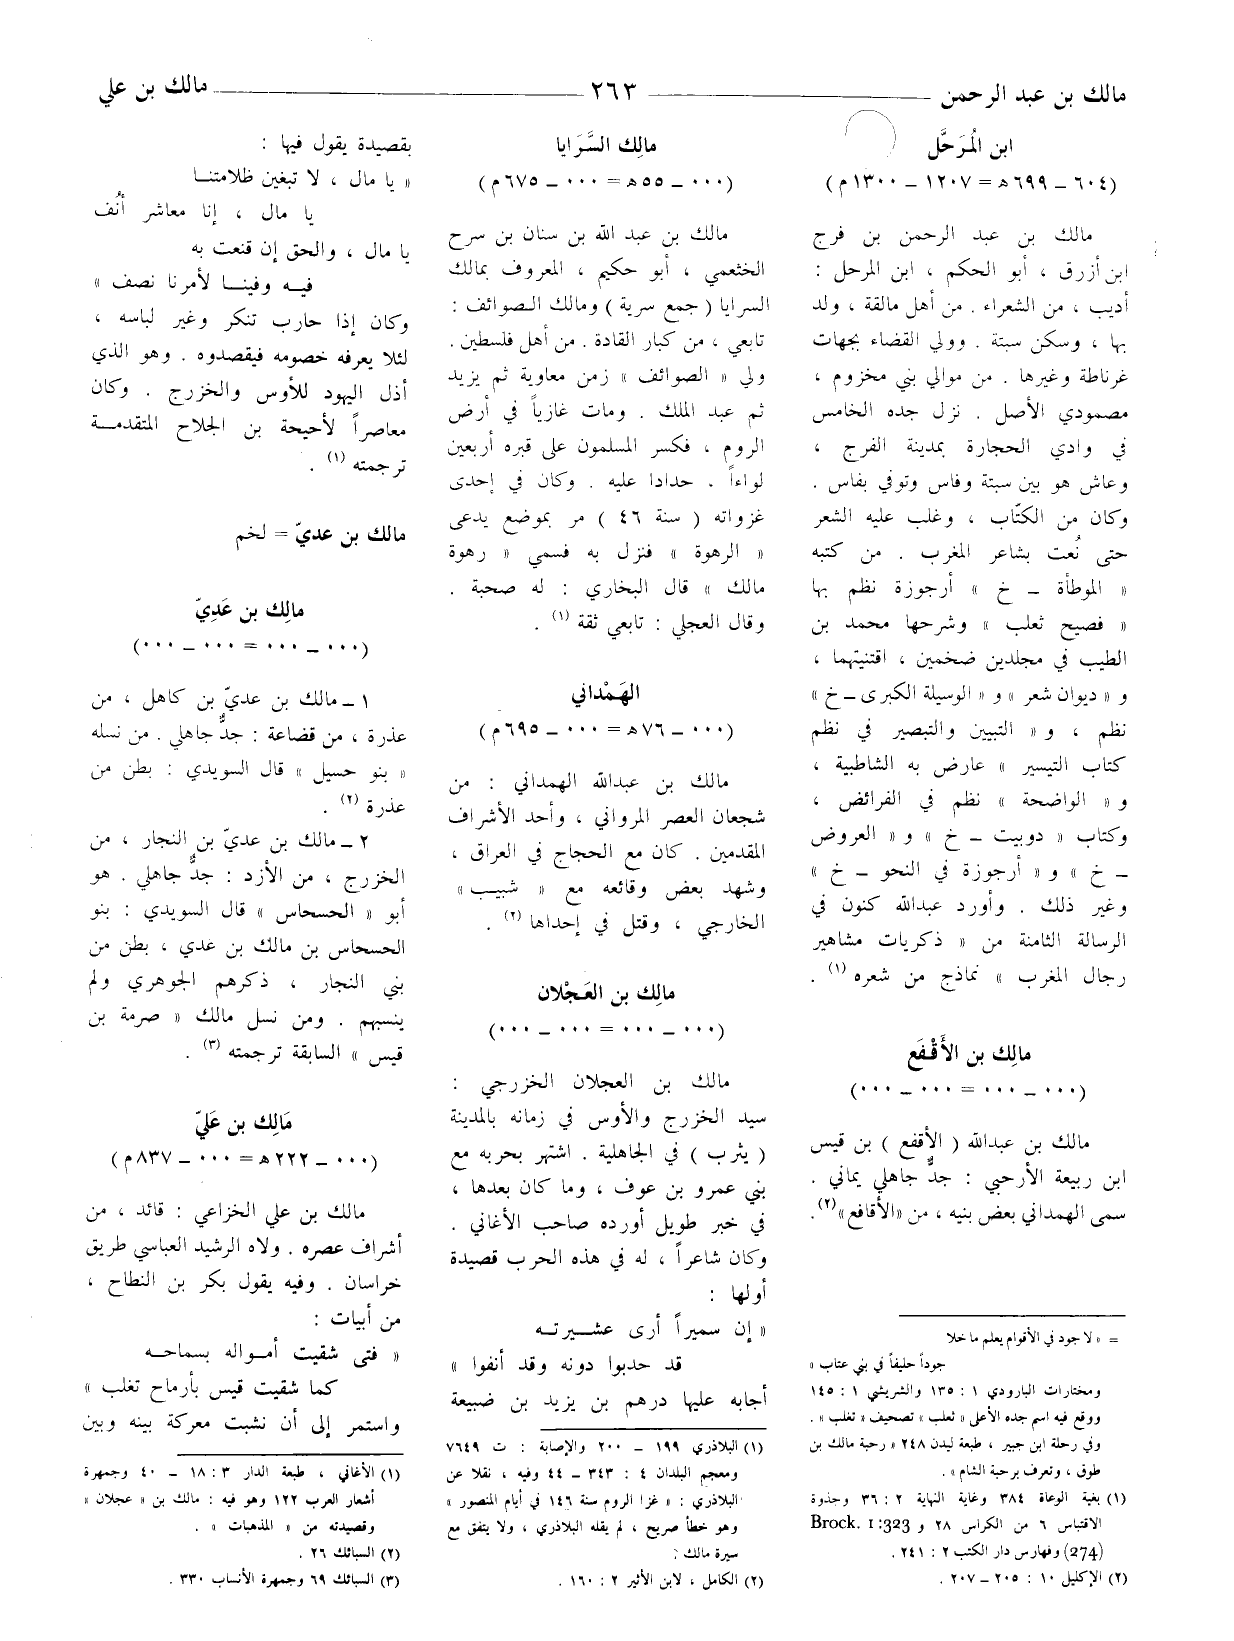 مالك بن عبد الرحمن
٢٦٣
مالك بن علي
ابن المُرَحَّل
(٦٠٤ ــ ٦٩٩ هـ = ١٢٠٧ ــ ١٣٠٠ م)
مالك بن عبد الرحمن بن فرج
ابن أزرق ، أبو الحكم ، ابن المرحل :
أديب ، من الشعراء . من أهل مالقة ، ولد
بها ، وسكن سبتة . وولي القضاء بجهات
غرناطة وغيرها . من موالي بني مخزوم ،
مصمودي الأصل . نزل جده الخامس
في وادي الحجارة بمدينة الفرج ،
وعاش هو بين سبتة وفاس وتوفي بفاس .
وكان من الكتّاب ، وغلب عليه الشعر
حتى نُعت بشاعر المغرب . من كتبه
« الموطأة ــ خ » أرجوزة نظم بها
« فصيح ثعلب » وشرحها محمد بن
الطيب في مجلدين ضخمين ، اقتنيتهما ،
و « ديوان شعر » و « الوسيلة الكبرى ــ خ »
نظم ، و « التبيين والتبصير في نظم
كتاب التيسير » عارض به الشاطبية ،
و « الواضحة » نظم في الفرائض ،
وكتاب « دوبيت ــ خ » و « العروض
ــ خ » و « أرجوزة في النحو ــ خ »
وغير ذلك . وأورد عبدالله كنون في
الرسالة الثامنة من « ذكريات مشاهير
رجال المغرب » نماذج من شعره (١) .
مالِك بن الأَقْفَع
(٠٠٠ ــ ٠٠٠ = ٠٠٠ ــ ٠٠٠)
مالك بن عبدالله ( الأقفع ) بن قيس
ابن ربيعة الأرحبي : جدٌّ جاهلي يماني .
سمى الهمداني بعض بنيه ، من «الأقافع»(٢).
= « لا جود في الأقوام يعلم ما خلا
جوداً حليفاً في بني عتاب »
ومختارات البارودي ١ : ١٣٥ والشريشي ١ : ١٤٥
ووقع فيه اسم جده الأعلى « ثعلب » تصحيف « تغلب » .
وفي رحلة ابن جبير ، طبعة ليدن ٢٤٨ « رحبة مالك بن
طوق ، وتعرف برحبة الشام » .
(١) بغية الوعاة ٣٨٤ وغاية النهاية ٢ : ٣٦ وجذوة
الاقتباس ٦ من الكراس ٢٨ و Brock. I :323
(274) وفهارس دار الكتب ٢ : ٢٤١ .
(٢) الإكليل ١٠ : ٢٠٥ ــ ٢٠٧ .
مالِك السَّرَايا
(٠٠٠ ــ ٥٥ هـ = ٠٠٠ ــ ٦٧٥ م)
مالك بن عبد الله بن سنان بن سرح
الخثعمي ، أبو حكيم ، المعروف بمالك
السرايا ( جمع سرية ) ومالك الصوائف :
تابعي ، من كبار القادة . من أهل فلسطين .
ولي « الصوائف » زمن معاوية ثم يزيد
ثم عبد الملك . ومات غازياً في أرض
الروم ، فكسر المسلمون على قبره أربعين
لواءاً ، حدادا عليه . وكان في إحدى
غزواته ( سنة ٤٦ ) مر بموضع يدعى
« الرهوة » فنزل به فسمي « رهوة
مالك » قال البخاري : له صحبة .
وقال العجلي : تابعي ثقة (١) .
الهَمْداني
(٠٠٠ ــ ٧٦ هـ = ٠٠٠ ــ ٦٩٥ م)
مالك بن عبدالله الهمداني : من
شجعان العصر المرواني ، وأحد الأشراف
المقدمين . كان مع الحجاج في العراق ،
وشهد بعض وقائعه مع « شبيب »
الخارجي ، وقتل في إحداها (٢) .
مالِك بن العَجْلان
(٠٠٠ ــ ٠٠٠ = ٠٠٠ ــ ٠٠٠)
مالك بن العجلان الخزرجي :
سيد الخزرج والأوس في زمانه بالمدينة
( يثرب ) في الجاهلية . اشتهر بحربه مع
بني عمرو بن عوف ، وما كان بعدها ،
في خبر طويل أورده صاحب الأغاني .
وكان شاعراً ، له في هذه الحرب قصيدة
أولها :
« إن سميراً أرى عشيرته
قد حدبوا دونه وقد أنفوا »
أجابه عليها درهم بن يزيد بن ضبيعة
(١) البلاذري ١٩٩ ــ ٢٠٠ والإصابة : ت ٧٦٤٩
ومعجم البلدان ٤ : ٣٤٣ ــ ٤٤ وفيه ، نقلا عن
البلاذري : « غزا الروم سنة ١٤٦ في أيام المنصور »
وهو خطأ صريح ، لم يقله البلاذري ، ولا يتفق مع
سيرة مالك :
(٢) الكامل ، لابن الأثير ٢ : ١٦٠ .
بقصيدة يقول فيها :
« يا مال ، لا تبغين ظلامتنا
يا مال ، إنا معاشر أُنُف
يا مال ، والحق إن قنعت به
فيه وفينا لأمرنا نصف »
وكان إذا حارب تنكر وغير لباسه ،
لئلا يعرفه خصومه فيقصدوه . وهو الذي
أذل اليهود للأوس والخزرج . وكان
معاصراً لأحيحة بن الجلاح المتقدمة
ترجمته (١) .
مالك بن عديّ = لخم
مالِك بن عَدِيّ
(٠٠٠ ــ ٠٠٠ = ٠٠٠ ــ ٠٠٠)
١ ــ مالك بن عديّ بن كاهل ، من
عذرة ، من قضاعة : جدٌّ جاهلي . من نسله
« بنو حسيل » قال السويدي : بطن من
عذرة (٢) .
٢ ــ مالك بن عديّ بن النجار ، من
الخزرج ، من الأزد : جدٌّ جاهلي . هو
أبو « الحسحاس » قال السويدي : بنو
الحسحاس بن مالك بن عدي ، بطن من
بني النجار ، ذكرهم الجوهري ولم
ينسبهم . ومن نسل مالك « صرمة بن
قيس » السابقة ترجمته (٣) .
مَالِك بن عَليّ
(٠٠٠ ــ ٢٢٢ هـ = ٠٠٠ ــ ٨٣٧ م)
مالك بن علي الخزاعي : قائد ، من
أشراف عصره . ولاه الرشيد العباسي طريق
خراسان . وفيه يقول بكر بن النطاح ،
من أبيات :
« فتى شقيت أمواله بسماحه
كما شقيت قيس بأرماح تغلب »
واستمر إلى أن نشبت معركة بينه وبين
(١) الأغاني ، طبعة الدار ٣ : ١٨ ــ ٤٠ وجمهرة
أشعار العرب ١٢٢ وهو فيه : مالك بن « عجلان »
وقصيدته من « المذهبات » .
(٢) السبائك ٢٦ .
(٣) السبائك ٦٩ وجمهرة الأنساب ٣٣٠ .